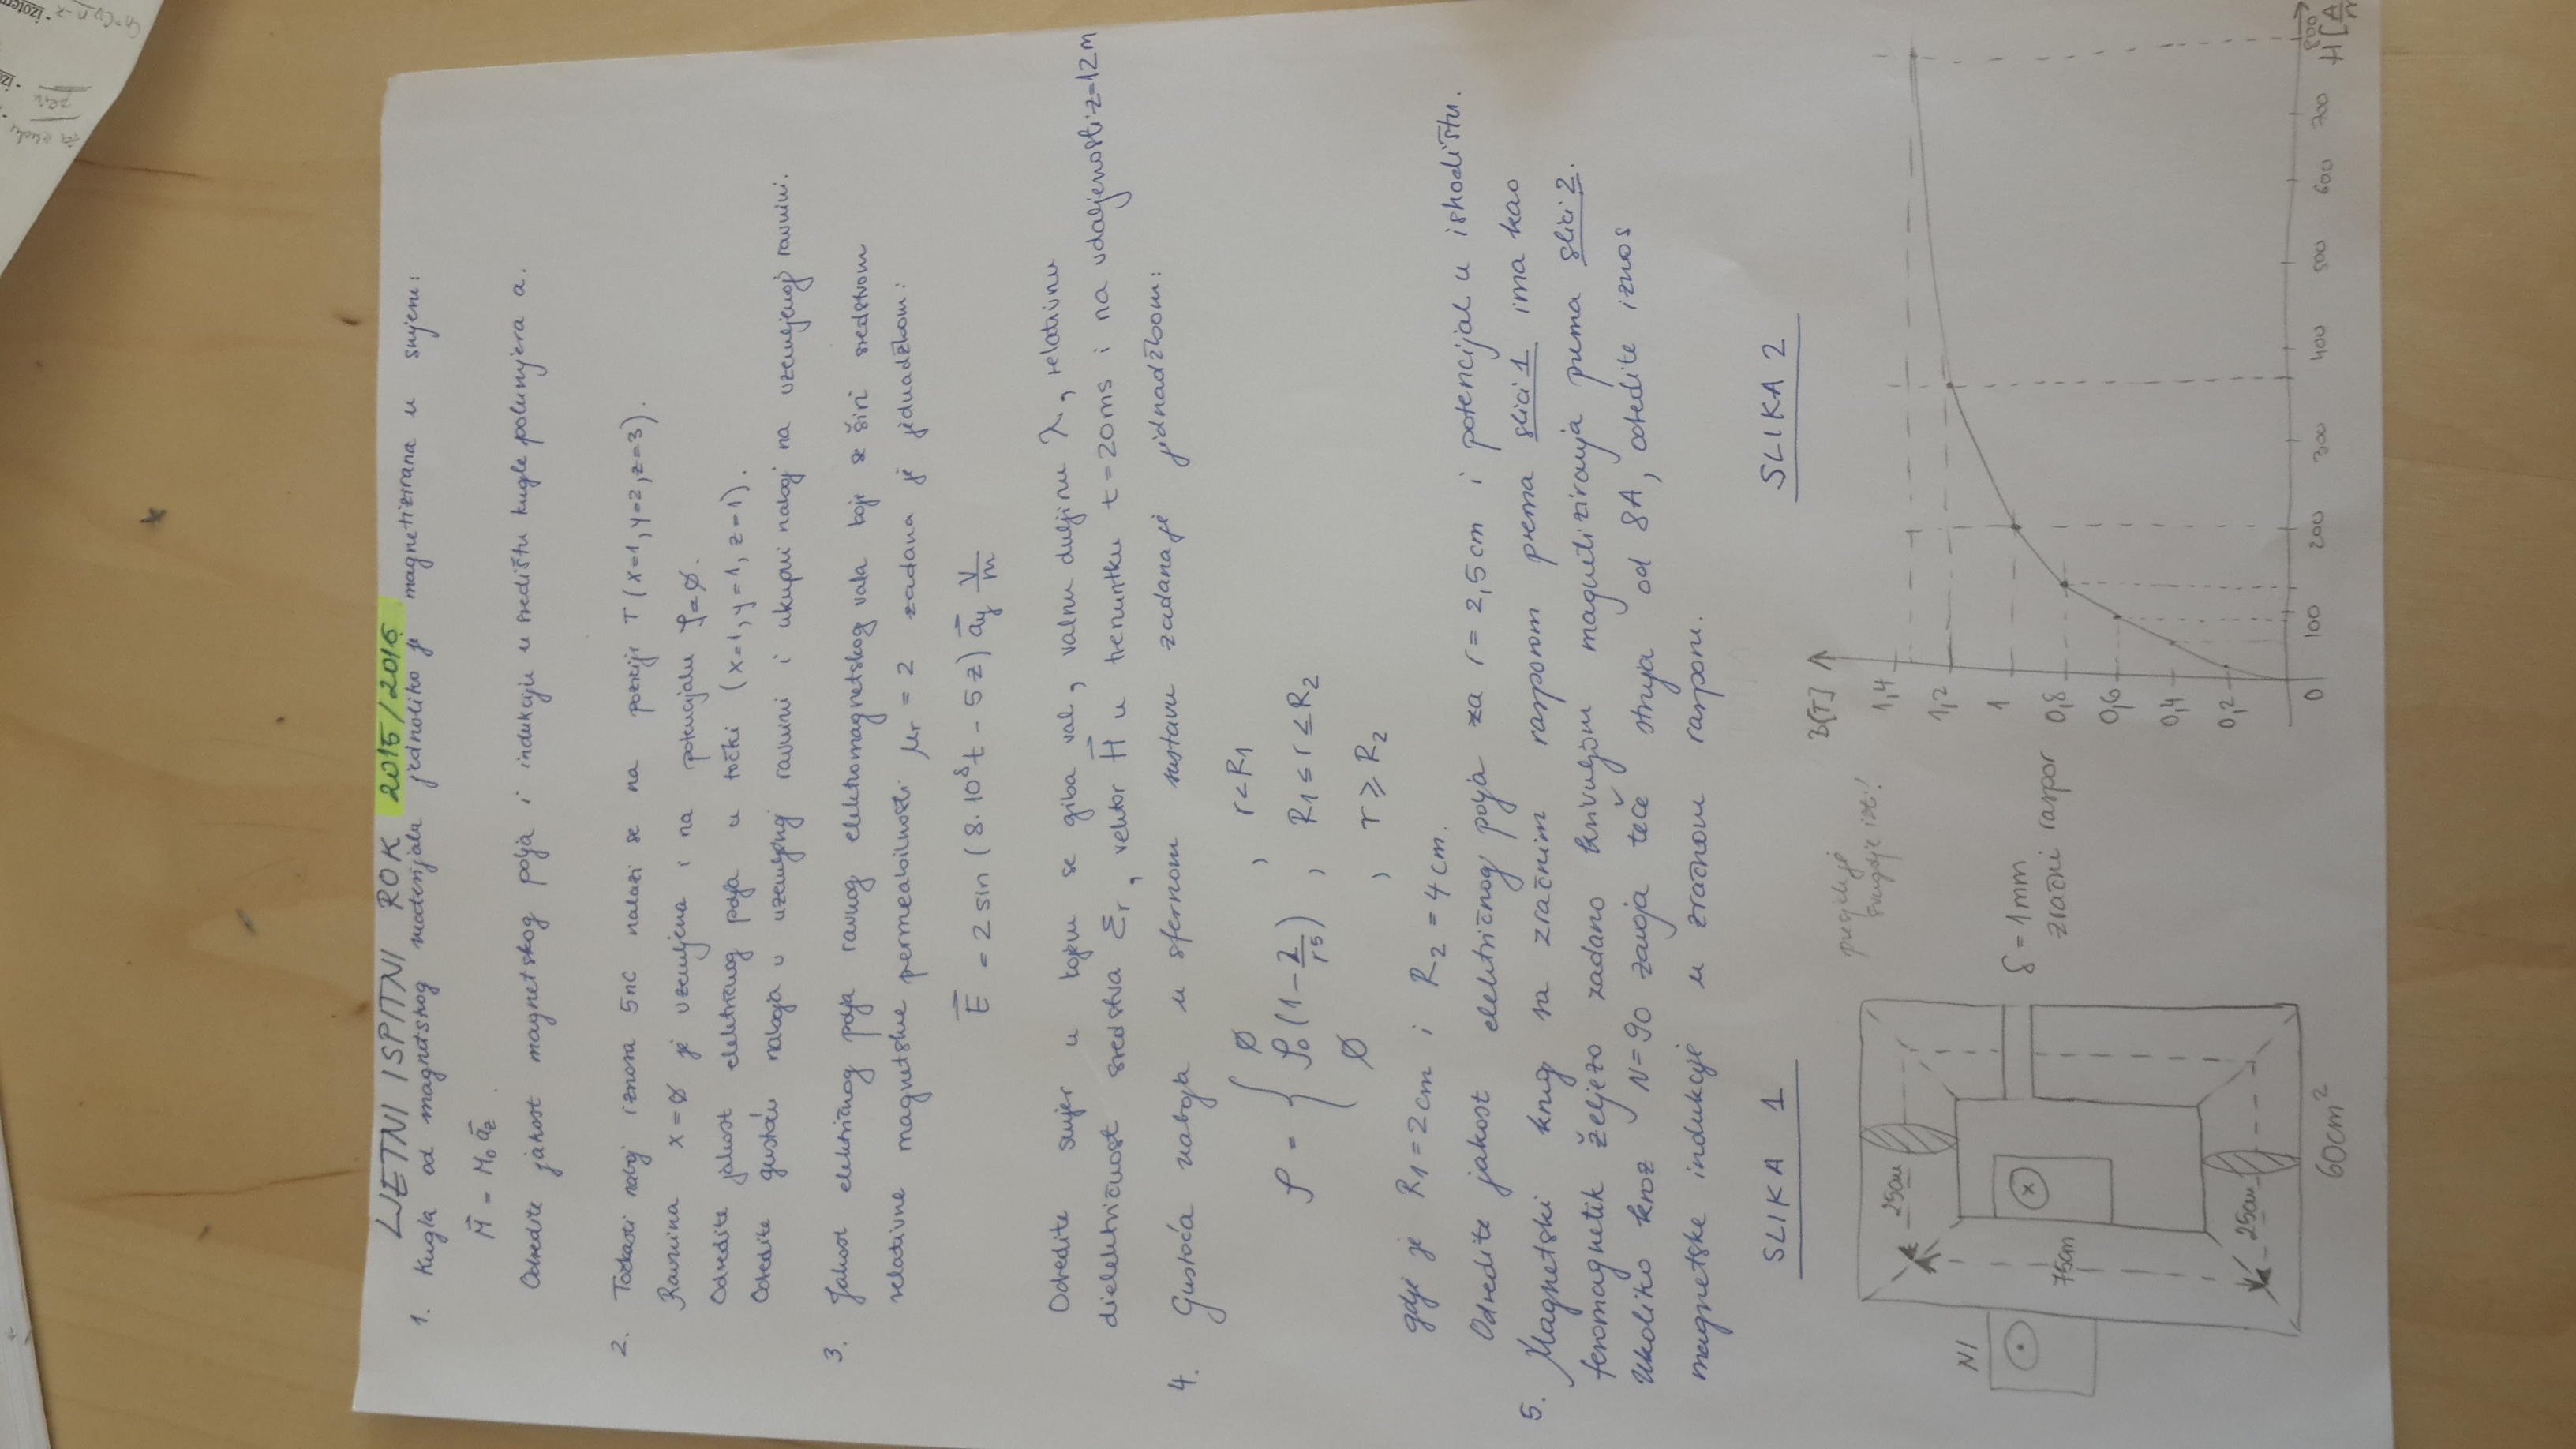 LJETNI ISPITNI ROK 2015/2016
1. Kugla od magnetskog materijala jednoliko je magnetizirana u smjeru:
M⃗ = M₀ a⃗z.
Odredite jakost magnetskog polja i indukciju u središtu kugle polumjera a.
2. Točkasti naboj iznosa 5nC nalazi se na poziciji T(x=1, y=2, z=3).
Ravnina x=∅ je uzemljena i na potencijalu φ=∅.
Odredite jakost električnog polja u točki (x=1, y=1, z=1).
Odredite gustoću naboja u uzemljenoj ravnini i ukupni naboj na uzemljenoj ravnini.
3. Jakost električnog polja ravnog elektromagnetskog vala koji se širi sredstvom
relativne magnetske permeabilnosti μr = 2 zadana je jednadžbom:
E⃗ = 2 sin (8·10⁸t - 5z) a⃗y V/m
Odredite smjer u kojem se giba val, valnu duljinu λ, relativnu
dielektričnost sredstva εr, vektor H⃗ u trenutku t=20ms i na udaljenosti z=12m
4. Gustoća naboja u sfernom sustavu zadana je jednadžbom:
ρ = { ∅ , r<R₁
ρ₀(1-2/r⁵) , R₁≤r≤R₂
∅ , r≥R₂
gdje je R₁=2cm i R₂=4cm.
Odredite jakost električnog polja za r=2,5cm i potencijal u ishodištu.
5. Magnetski krug sa zračnim rasporom prema slici 1 ima kao
feromagnetik željezo zadano krivuljom magnetiziranja prema slici 2.
Ukoliko kroz N=90 zavoja teče struja od 8A, odredite iznos
magnetske indukcije u zračnom rasporu.
SLIKA 1
SLIKA 2
presjek je
svugdje isti!
25cm
NI
75cm
δ=1mm
zračni raspor
25cm
60cm²
B[T]
1,4
1,2
1
0,8
0,6
0,4
0,2
0 100 200 300 400 500 600 700 800
H[A